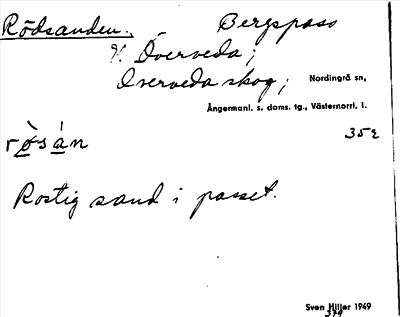 Rödsanden. Bergspass
i Överveda;
Överveda skog; Nordingrå sn,
Ångermanl. s. doms. tg., Västernorrl. l.
rò̱sá̱n 35ε
Rostig sand i passet.
Sven Hiller 1949